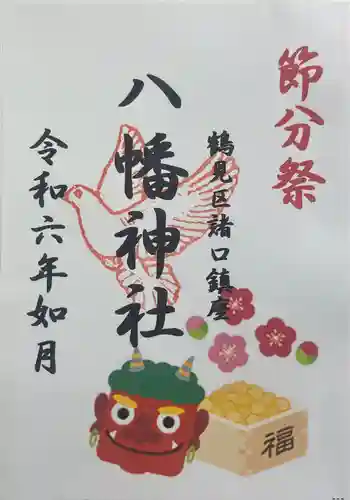 節分祭
鶴見区諸口鎮座
八幡神社
令和六年如月
福